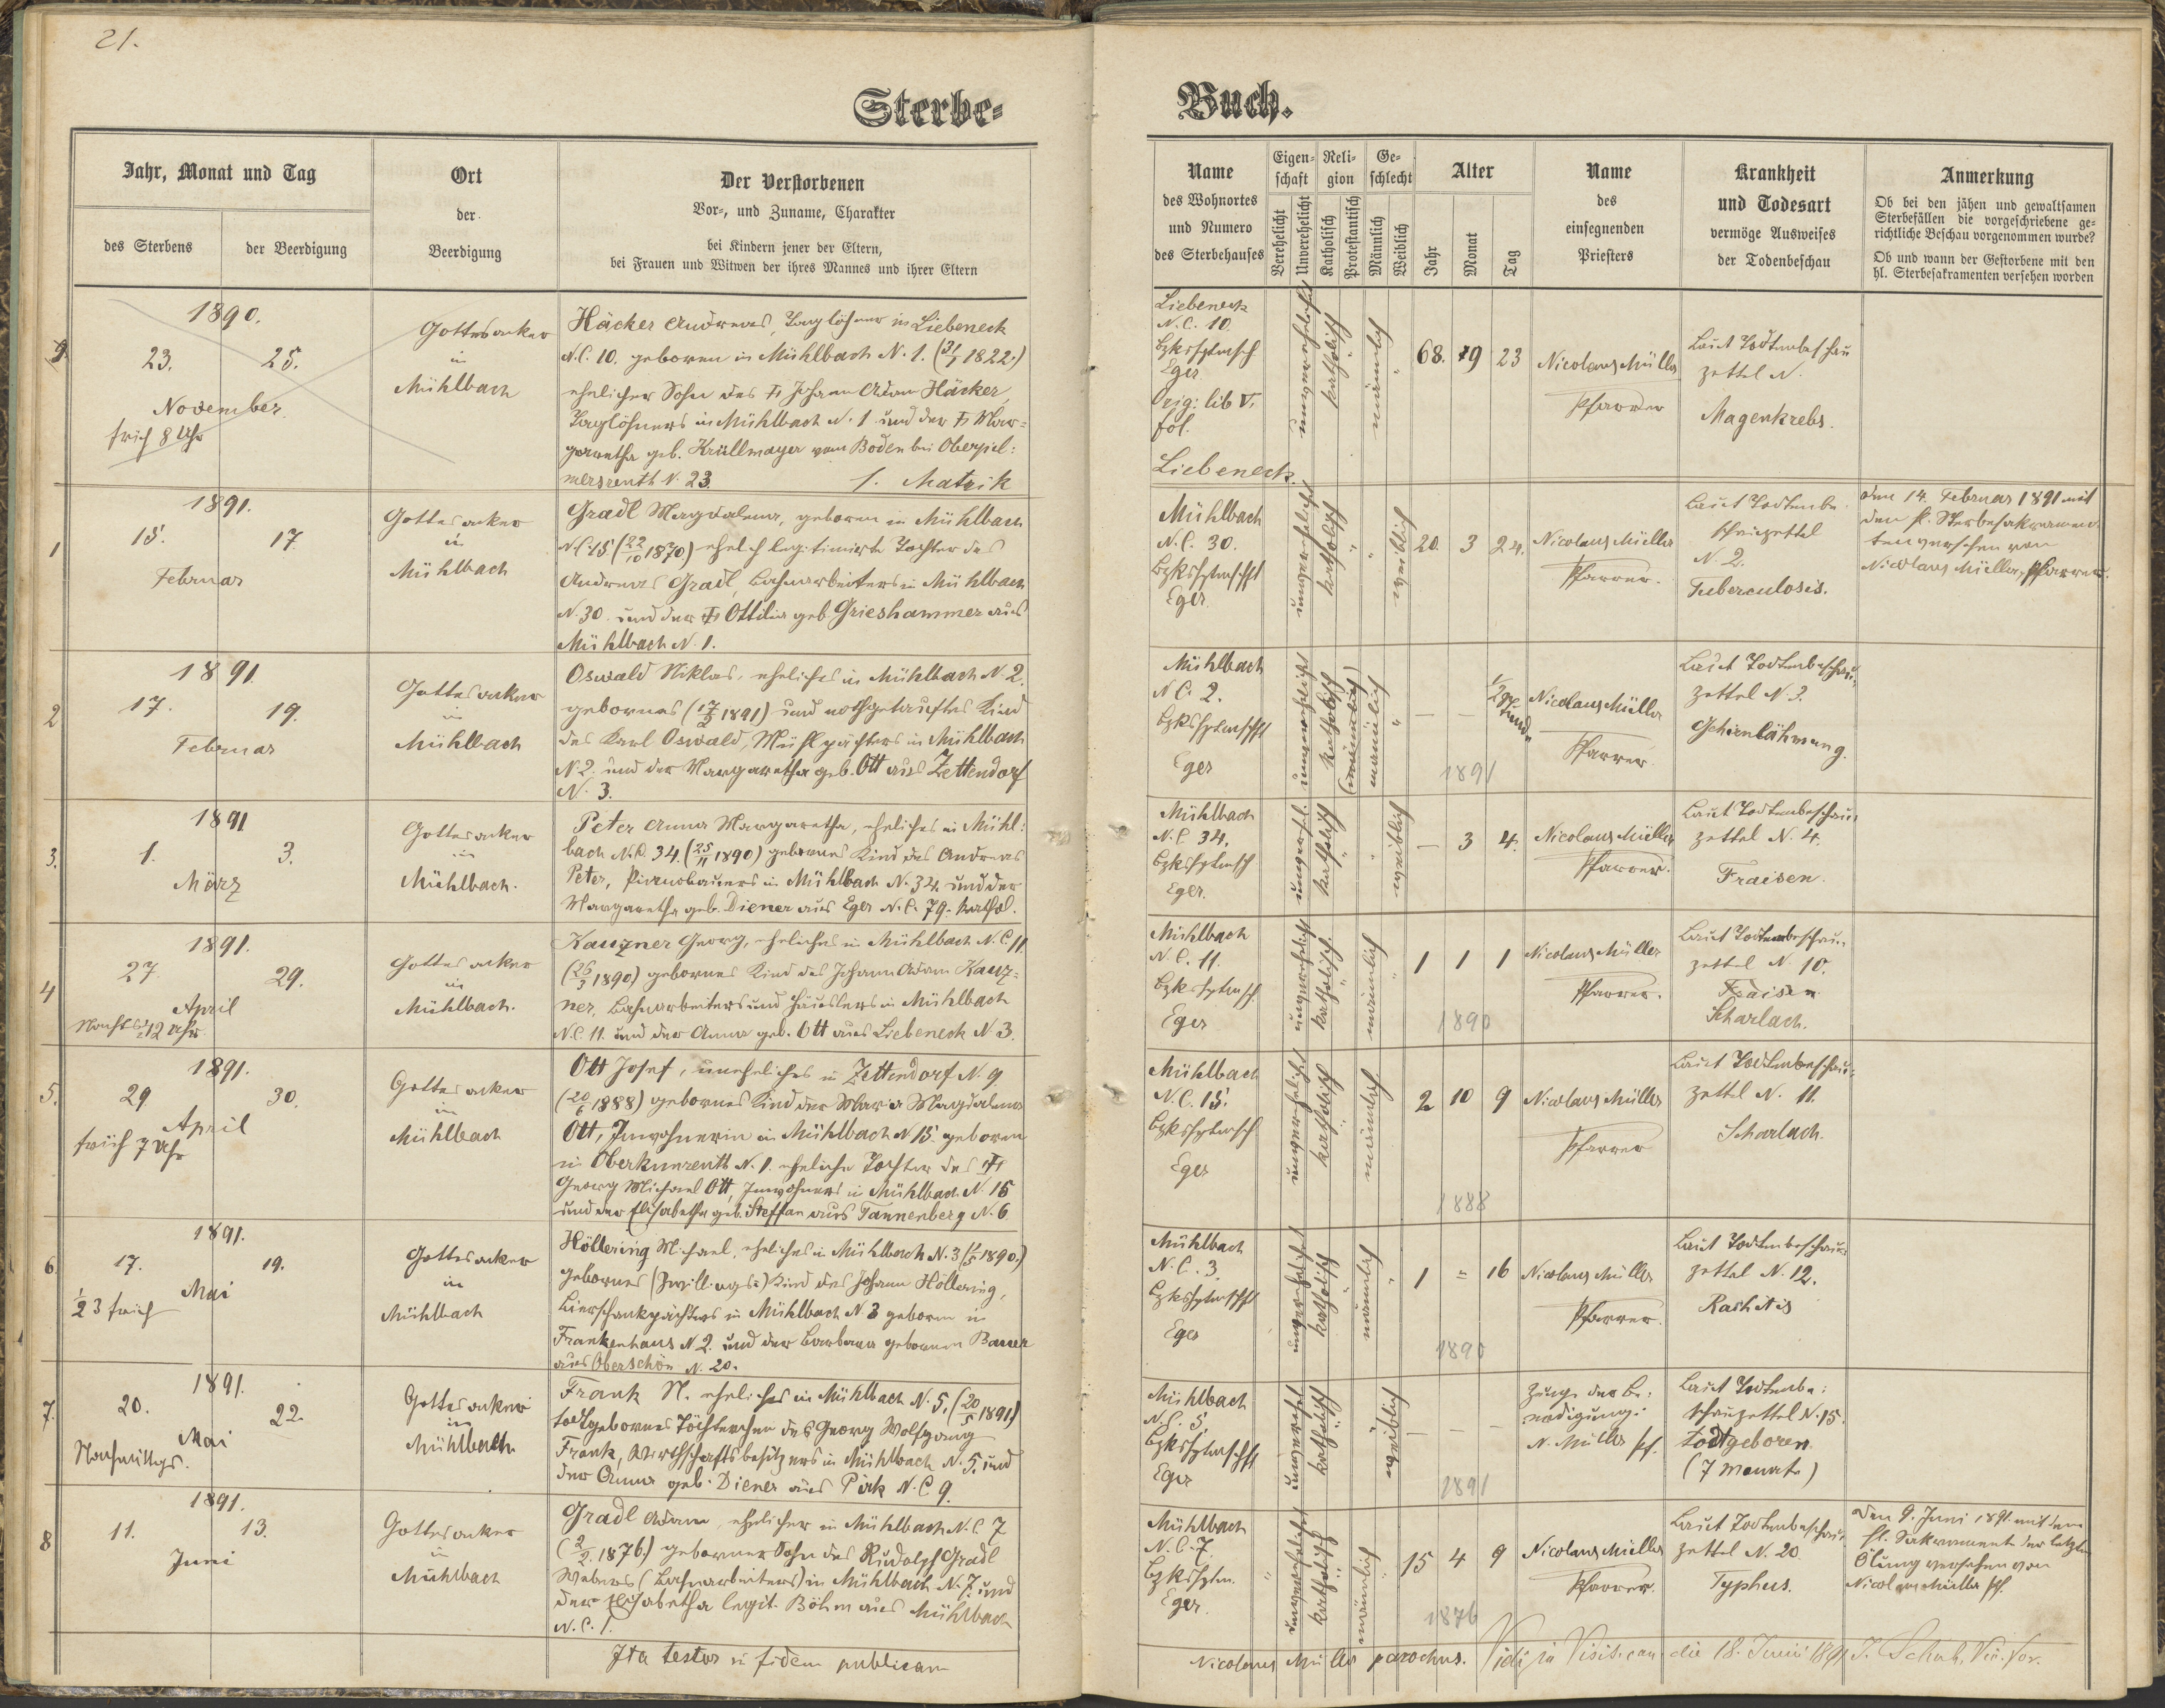 21.
Sterbe- Buch.
Jahr, Monat und Tag
des Sterbens
der Beerdigung
Ort
der
Beerdigung
Der Verstorbenen
Vor-, und Zuname, Charakter
bei Kindern jener der Eltern,
bei Frauen und Witwen der ihres Mannes und ihrer Eltern
Name
des Wohnortes
und Numero
des Sterbehauses
Eigen-
schaft
Verehelicht
Unverehelicht
Reli-
gion
Katholisch
Protestantisch
Ge-
schlecht
Männlich
Weiblich
Alter
Jahr
Monat
Tag
Name
des
einsegnenden
Priesters
Krankheit
und Todesart
vermöge Ausweises
der Todenbeschau
Anmerkung
Ob bei den jähen und gewaltsamen
Sterbefällen die vorgeschriebene ge-
richtliche Beschau vorgenommen wurde?
Ob und wann der Gestorbene mit den
hl. Sterbesakramenten versehen worden
9.
1890.
23.
25.
November
früh 8 Uhr
Gottesacker
in
Mühlbach
Häcker Andreas, Taglöhner in Liebeneck
N.C. 10. geboren in Mühlbach N. 1. (31/1 1822.)
ehelicher Sohn des † Johann Adam Häcker,
Taglöhners in Mühlbach N. 1 und der † Mar-
garetha geb. Krüllmayer vom Boden bei Oberpil:
mersreuth N. 23. 1. Matrik
Liebeneck
N.C. 10.
Bzkshptmsch
Eger
Orig: lib V.
fol.
Liebeneck.
unverehelicht
katholisch
männlich
68. 9 23
Nicolaus Müller
Pfarrer
Laut Todtenbeschau
zettel N.
Magenkrebs.
1
1891.
15.
17.
Februar
Gottesacker
in
Mühlbach
Gradl Magdalena, geboren in Mühlbach
N.C. 15 (22/10 1870) ehelich legitimirte Tochter des
Andreas Gradl, Bahnarbeiters in Mühlbach
N. 30. und der † Ottilia geb. Grieshammer aus
Mühlbach N. 1.
Mühlbach
N.C. 30.
Bzkshptmschft
Eger
unverehelicht
katholisch
weiblich
20. 3 24.
Nicolaus Müller
Pfarrer.
Laut Todtenbe-
schauzettel
N. 2.
Tuberculosis.
den 14. Februar 1891 mit
den hl. Sterbesakramen-
ten versehen von
Nicolaus Müller, Pfarrer.
2
1891
17.
19.
Februar
Gottesacker
in
Mühlbach
Oswald Niklas, eheliches in Mühlbach N. 2.
gebornes (17/2 1891) und nothgetauftes Kind
des Karl Oswald, Mühlpächters in Mühlbach
N. 2. und der Margaretha geb. Ott aus Zettendorf
N. 3.
Mühlbach
N.C. 2.
Bzkshptmschft
Eger
unverehelicht
katholisch
(männlich)
männlich
— — 1/2 Stund
1891
Nicolaus Müller
Pfarrer.
Laut Todtenbeschau-
zettel N. 3.
Gehirnlähmung.
3.
1891
1.
3.
März
Gottesacker
in
Mühlbach.
Peter Anna Margaretha, eheliches in Mühl:
bach N.C. 34. (25/11 1890) gebornes Kind des Andreas
Peter, Pianobauers in Mühlbach N. 34. und der
Margaretha geb. Diener aus Eger N.C. 79. kathol.
Mühlbach
N.C. 34.
Bzkshptmsch
Eger.
unverehel.
katholisch
weiblich
— 3 4.
Nicolaus Müller
Pfarrer.
Laut Todtenbeschau-
zettel N. 4.
Fraisen.
4
1891.
27.
29.
April
Nachts 1/2 12 Uhr
Gottesacker
in
Mühlbach.
Kauzner Georg, eheliches in Mühlbach N.C. 11
(26/3 1890) gebornes Kind des Johann Adam Kauz-
ner, Bahnarbeiters und Häuslers in Mühlbach
N.C. 11. und der Anna geb. Ott aus Liebeneck N. 3.
Mühlbach
N.C. 11.
Bzkshptmsch
Eger
unverehelicht
katholisch.
männlich
1 1 1
1890
Nicolaus Müller
Pfarrer.
Laut Todtenbeschau-
zettel N. 10.
Fraisen
Scharlach.
5.
1891.
29
30.
April
früh 7 Uhr
Gottesacker
in
Mühlbach
Ott Josef, uneheliches in Zettendorf N. 9.
(20/6 1888) gebornes Kind der Maria Magdalena
Ott, Inwohnerin in Mühlbach N 15. geboren
in Oberkunreuth N. 1. eheliche Tochter des †
Georg Michael Ott, Inwohners in Mühlbach N. 15
und der Elisabetha geb. Steffan aus Tannenberg N. 6
Mühlbach
N.C. 15.
Bzkshptmsch
Eger
unverehelicht
katholisch
männlich
2 10 9
1888
Nicolaus Müller
Pfarrer
Laut Todtenbeschau-
zettel N. 11.
Scharlach.
6
1891.
17.
19.
Mai
1/2 3 früh
Gottesacker
in
Mühlbach
Höllering Michael, eheliches in Mühlbach N. 3 (1/5 1890.)
gebornes (Zwillings-) Kind des Johann Höllering,
Bierschankpächters in Mühlbach N. 3 geboren in
Frankenhaus N 2. und der Barbara gebornen Bauer
aus Oberschön N. 20.
Mühlbach
N.C. 3.
Bzkshptmschft
Eger
unverehelicht
katholisch
männlich
1 = 16
1890
Nicolaus Müller
Pfarrer.
Laut Todtenbeschau-
zettel N. 12.
Rachitis
7.
1891.
20.
22.
Mai
Nachmittgs.
Gottesacker
in
Mühlbach
Frank N. eheliches in Mühlbach N. 5. (20/5 1891.)
todtgebornes Töchterchen des Georg Wolfgang
Frank, Wirthschaftsbesitzers in Mühlbach N. 5. und
der Anna geb. Diener aus Pirk N.C. 9.
Mühlbach
N.C. 5
Bzkshptmschft
Eger
unverehel
katholisch
weiblich
— — —
1891
Zeuge der Be-
erdigung:
N. Müller Pf.
Laut Todtenbe-
schauzettel N. 15
todtgeboren.
(7 Monate)
8
1891.
11.
13.
Juni
Gottesacker
in
Mühlbach
Gradl Adam, ehelicher in Mühlbach N.C. 7
(2/2. 1876.) geborner Sohn des Rudolph Gradl
Webers (Bahnarbeiters) in Mühlbach N. 7. und
der Elisabetha legit. Böhm aus Mühlbach
N.C. 1.
Mühlbach
N.C. 7.
Bzkshptm.
Eger.
unverehelicht
katholisch
männlich
15 4 9
1876
Nicolaus Müller
Pfarrer.
Laut Todtenbeschau-
zettel N. 20.
Typhus.
Den 9. Juni 1891 mit dem
hl. Sakrament der letzten
Ölung versehen von
Nicolaus Müller Pf.
Ita testor in fidem publicam
Nicolaus Müller parochus. Vidi in Visit. can. die 18. Junii 1891 J. Schuh, Vic. For.